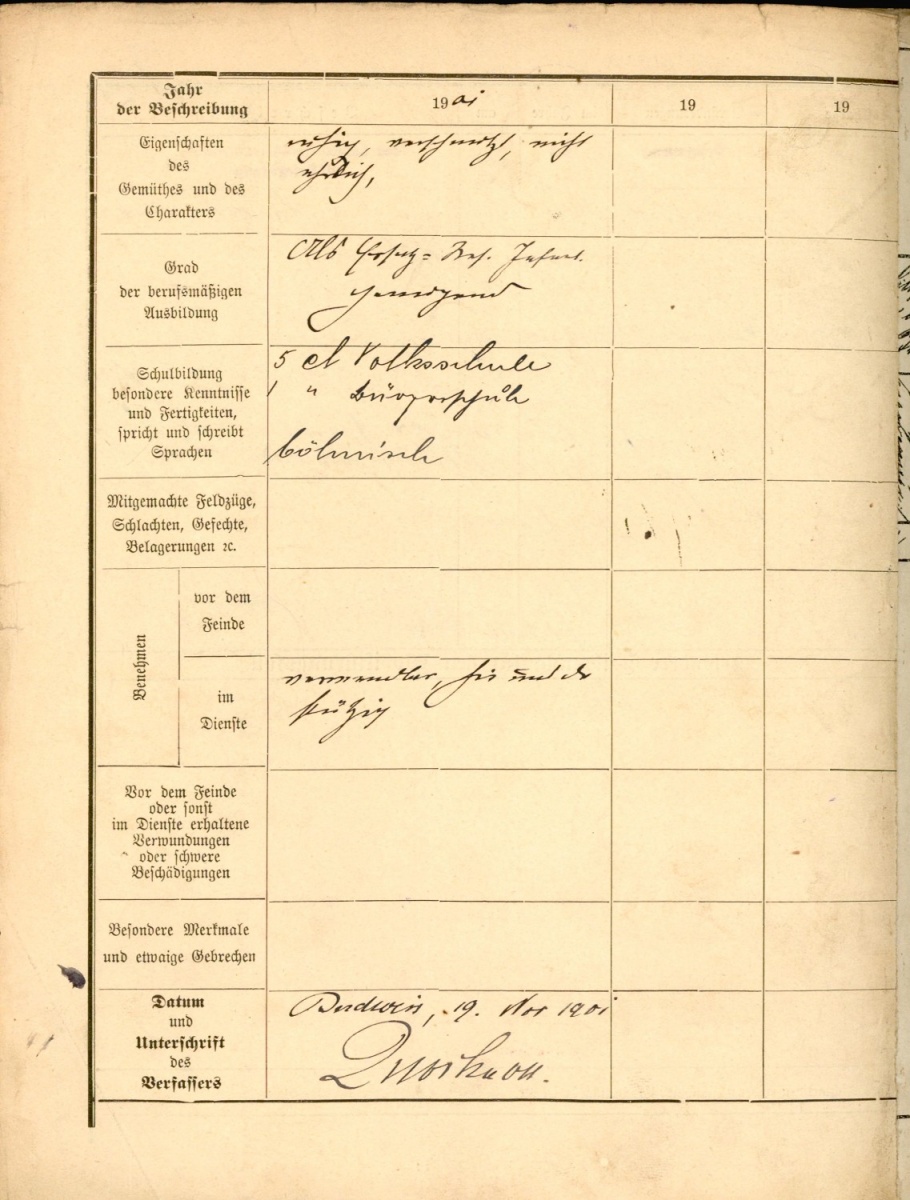 Jahr
der Beschreibung
1901
19
19
Eigenschaften
des
Gemüthes und des
Charakters
ruhig, verschmitzt, nicht
ehrlich,
Grad
der berufsmäßigen
Ausbildung
Als Ersatz= Res. Infant.
genügend
Schulbildung
besondere Kenntnisse
und Fertigkeiten,
spricht und schreibt
Sprachen
5 Cl Volksschule
1 " Bürgerschule
böhmisch
Mitgemachte Feldzüge,
Schlachten, Gefechte,
Belagerungen ꝛc.
Benehmen
vor dem
Feinde
im
Dienste
verwendbar, hie und da
stützig
Vor dem Feinde
oder sonst
im Dienste erhaltene
Verwundungen
oder schwere
Beschädigungen
Besondere Merkmale
und etwaige Gebrechen
Datum
und
Unterschrift
des
Verfassers
Budweis, 19. Nov 1901